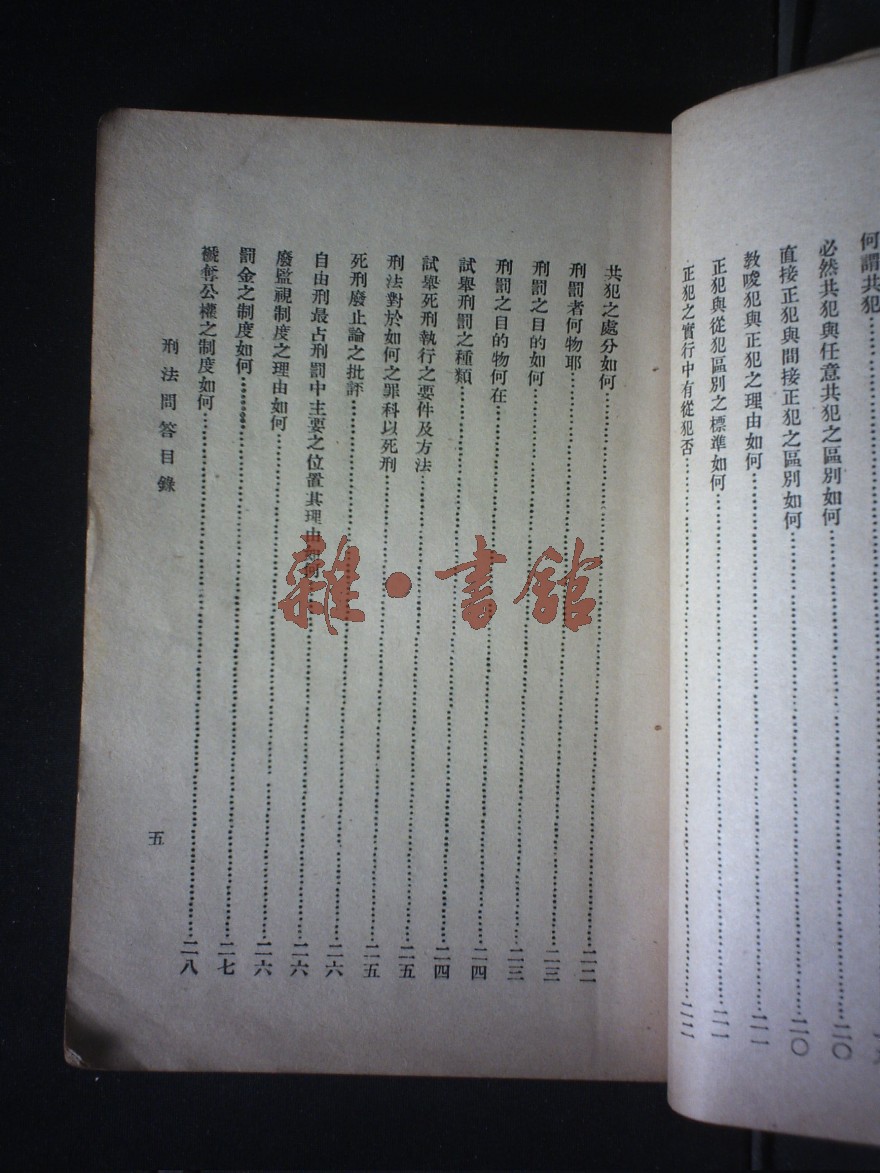 何謂共犯……
必然共犯與任意共犯之區別如何……二〇
直接正犯與間接正犯之區別如何……二〇
教唆犯與正犯之理由如何……二一
正犯與從犯區別之標準如何……二一
正犯之實行中有從犯否……二二
共犯之處分如何……二二
刑罰者何物耶……二三
刑罰之目的如何……二三
刑罰之目的物何在……二四
試舉刑罰之種類……二四
試舉死刑執行之要件及方法……二五
刑法對於如何之罪科以死刑……二五
死刑廢止論之批評……二六
自由刑最占刑罰中主要之位置其理由如何……二六
廢監視制度之理由如何……二六
罰金之制度如何……二七
褫奪公權之制度如何……二八
刑法問答目錄
五
雜·書館